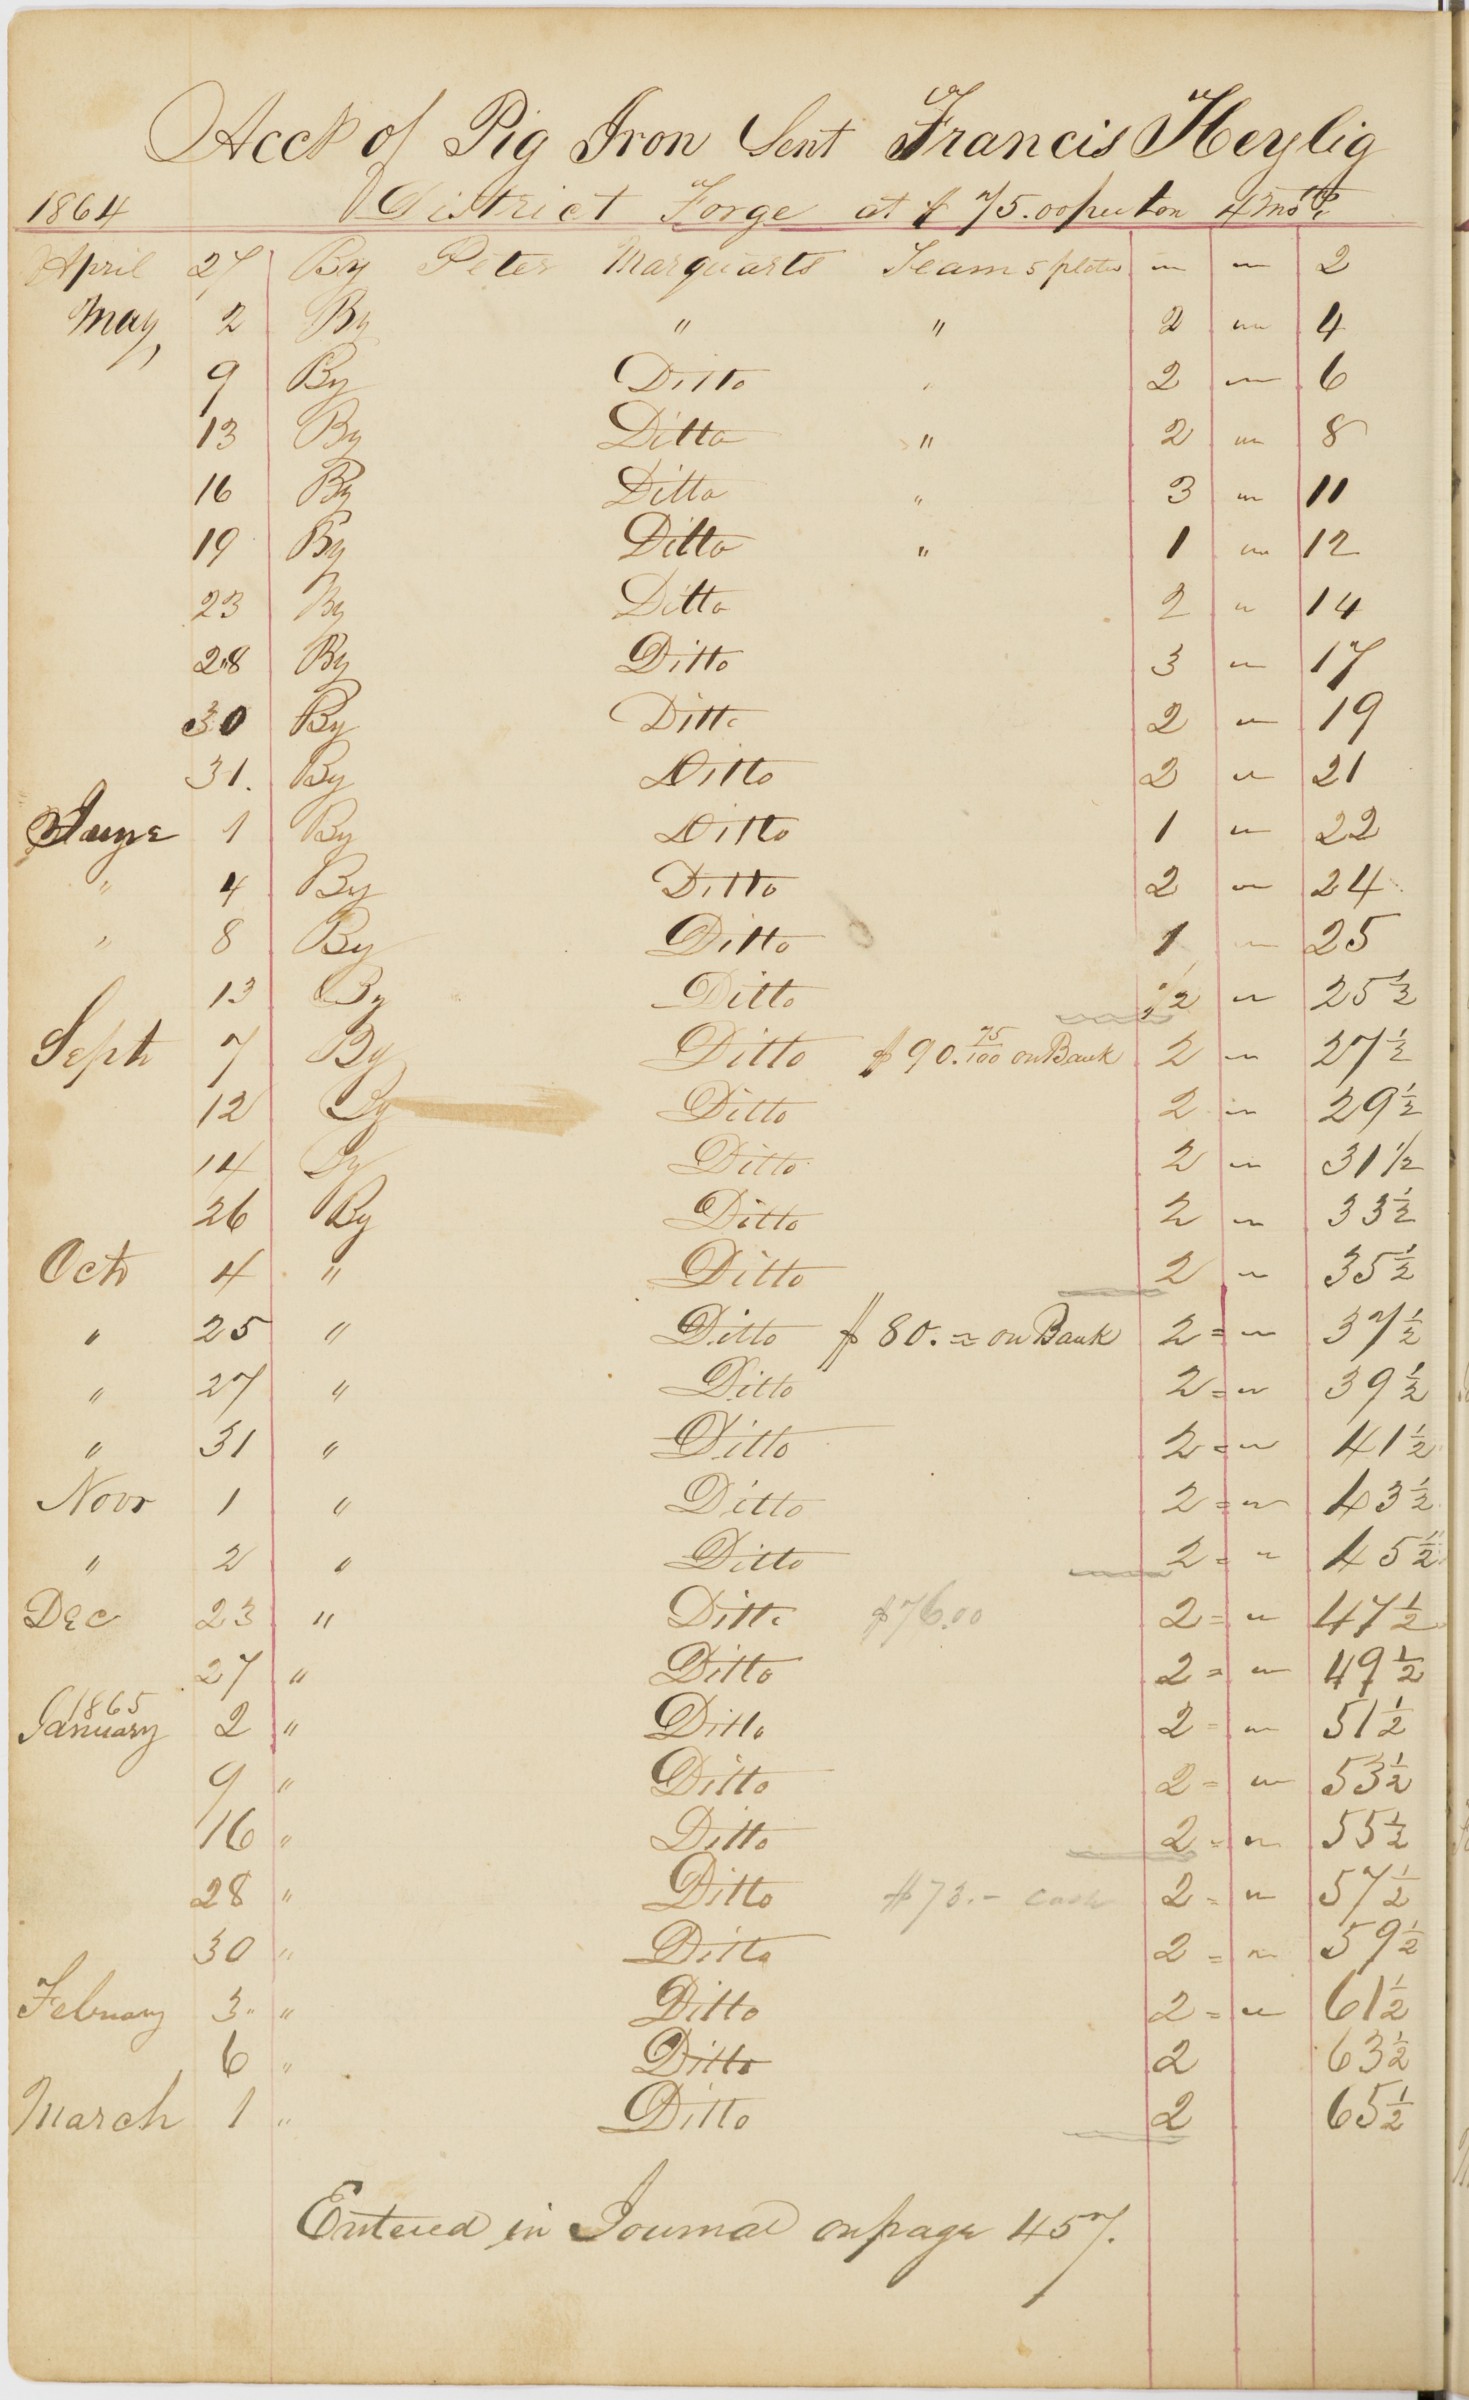 Acct of Pig Iron Sent Francis Heylig
1864 District Forge at $75.00 per ton 4 mos
April 27 By Peter Marquarts Team 5 plates " " 2
May 2 By " " 2 " 4
9 By Ditto " 2 " 6
13 By Ditto " 2 " 8
16 By Ditto " 3 " 11
19 By Ditto " 1 " 12
23 By Ditto 2 " 14
28 By Ditto 3 " 17
30 By Ditto 2 " 19
31. By Ditto 2 " 21
June 1 By Ditto 1 " 22
" 4 By Ditto 2 " 24
" 8 By Ditto 1 " 25
13 By Ditto 1/2 " 25 1/2
Sept 7 By Ditto $90.75/100 on Bank 2 " 27 1/2
12 By Ditto 2 " 29 1/2
14 By Ditto 2 " 31 1/2
26 By Ditto 2 " 33 1/2
Octr 4 " Ditto 2 " 35 1/2
" 25 " Ditto $80.= on Bank 2 = " 37 1/2
" 27 " Ditto 2 = " 39 1/2
" 31 " Ditto 2 = " 41 1/2
Novr 1 " Ditto 2 = " 43 1/2
" 2 " Ditto 2 = " 45 1/2
Dec 23 " Ditto $76.00 2 = " 47 1/2
27 " Ditto 2 = " 49 1/2
1865
January 2 " Ditto 2 = " 51 1/2
9 " Ditto 2 = " 53 1/2
16 " Ditto 2 = " 55 1/2
28 " Ditto $73.- cash 2 = " 57 1/2
30 " Ditto 2 = " 59 1/2
February 3 " " Ditto 2 = " 61 1/2
6 " Ditto 2 63 1/2
March 1 " Ditto 2 65 1/2
Entered in Journal on page 457.